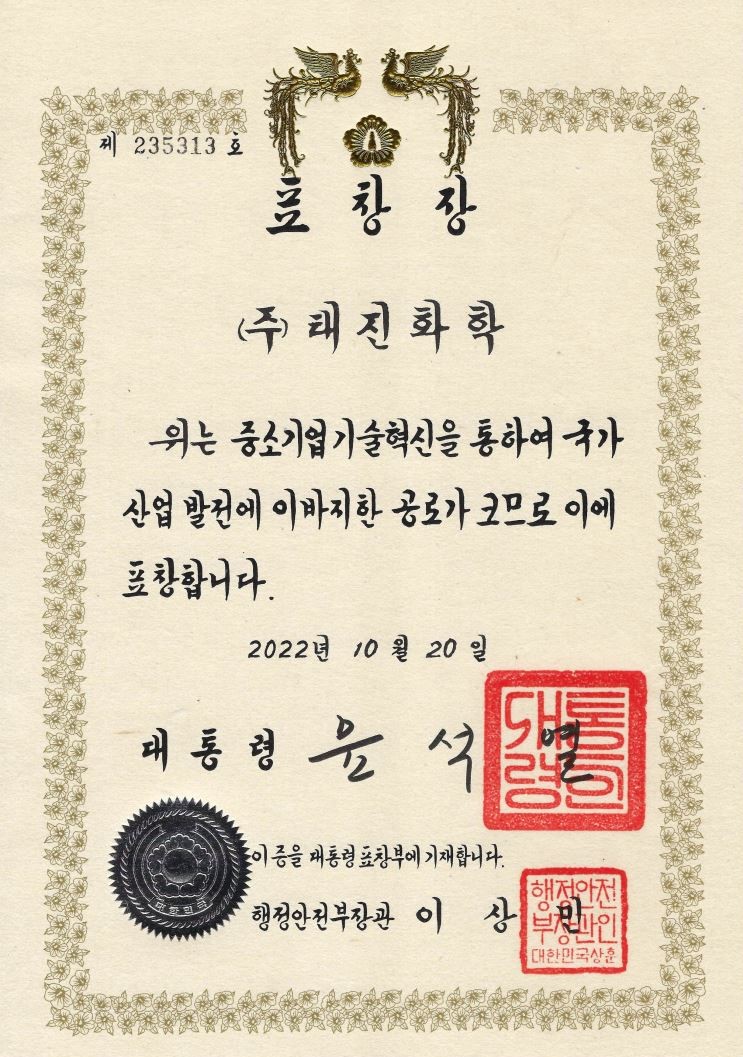 제 235313 호
표창장
(주)태진화학
위는 중소기업기술혁신을 통하여 국가
산업 발전에 이바지한 공로가 크므로 이에
표창합니다.
2022년 10월 20일
대통령 윤석열
대통령의인
이 증을 대통령표창부에 기재합니다.
대한민국
행정안전부장관 이상민
행정안전
부장관인
대한민국상훈